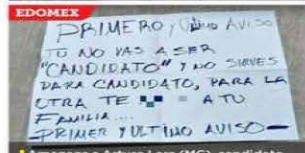 EDOMEX
PRIMERO y Último AVISO
TU NO VAS A SER
"CANDIDATO" Y NO SIRVES
PARA CANDIDATO, PARA LA
OTRA TE A TU
FAMILIA....
PRIMER Y ULTIMO AVISO—